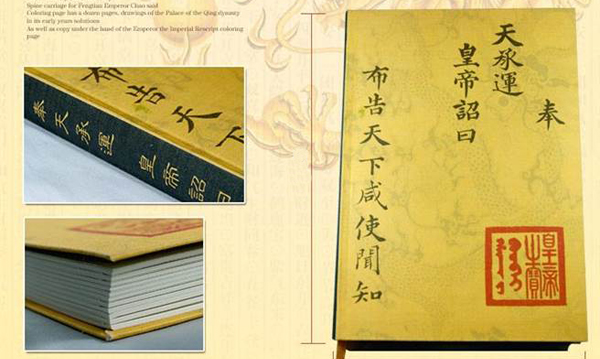 Spine carriage for Fengtian Emperor Chao said
Coloring page has a dozen pages, drawings of the Palace of the Qing dynasty
in its early years solutions
As well as copy under the hand of the Emperor the Imperial Rescript coloring
page
布告天下
奉天承運 皇帝詔曰
奉
天承運
皇帝詔曰
布告天下咸使聞知
皇帝
之寶